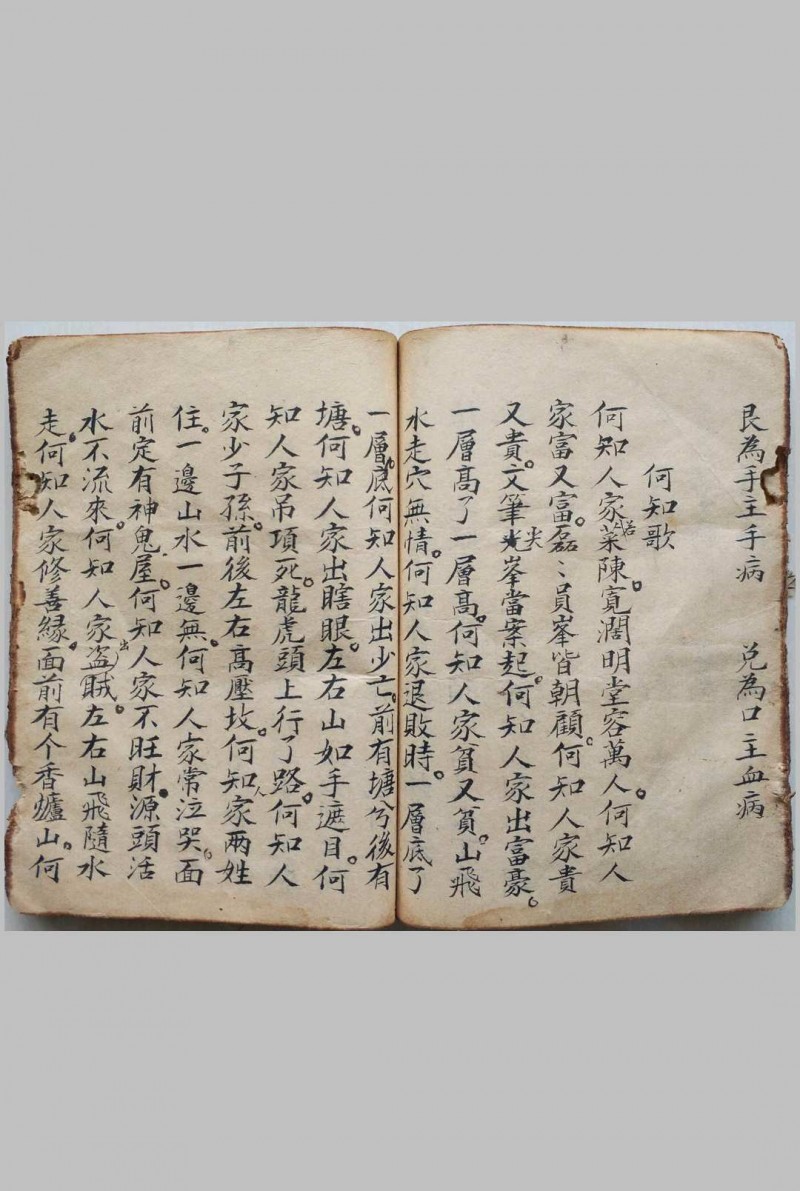 艮為手主手病　兌為口主血病
何知歌
何知人家菜陳。寬濶明堂容萬人。何知人
家富又富。磊〻員峯皆朝顧。何知人家貴
又貴。文筆尖峯當案起。何知人家出富豪。
一層高了一層高。何知人家貧又貧。山飛
水走穴無情。何知人家退敗時。一層底了
一層底。何知人家出少亡。前有塘兮後有
塘。何知人家出瞎眼。左右山如手遮目。何
知人家吊項死。龍虎頭上行了路。何知人
家少子孫。前後左右高壓坟。何知人家兩姓
住。一邊山水一邊無。何知人家常泣哭。面
前定有神鬼屋。何知人家不旺財。源頭活
水不流來。何知人家出盗賊。左右山飛隨水
走。何知人家修善緣。面前有个香爐山。何